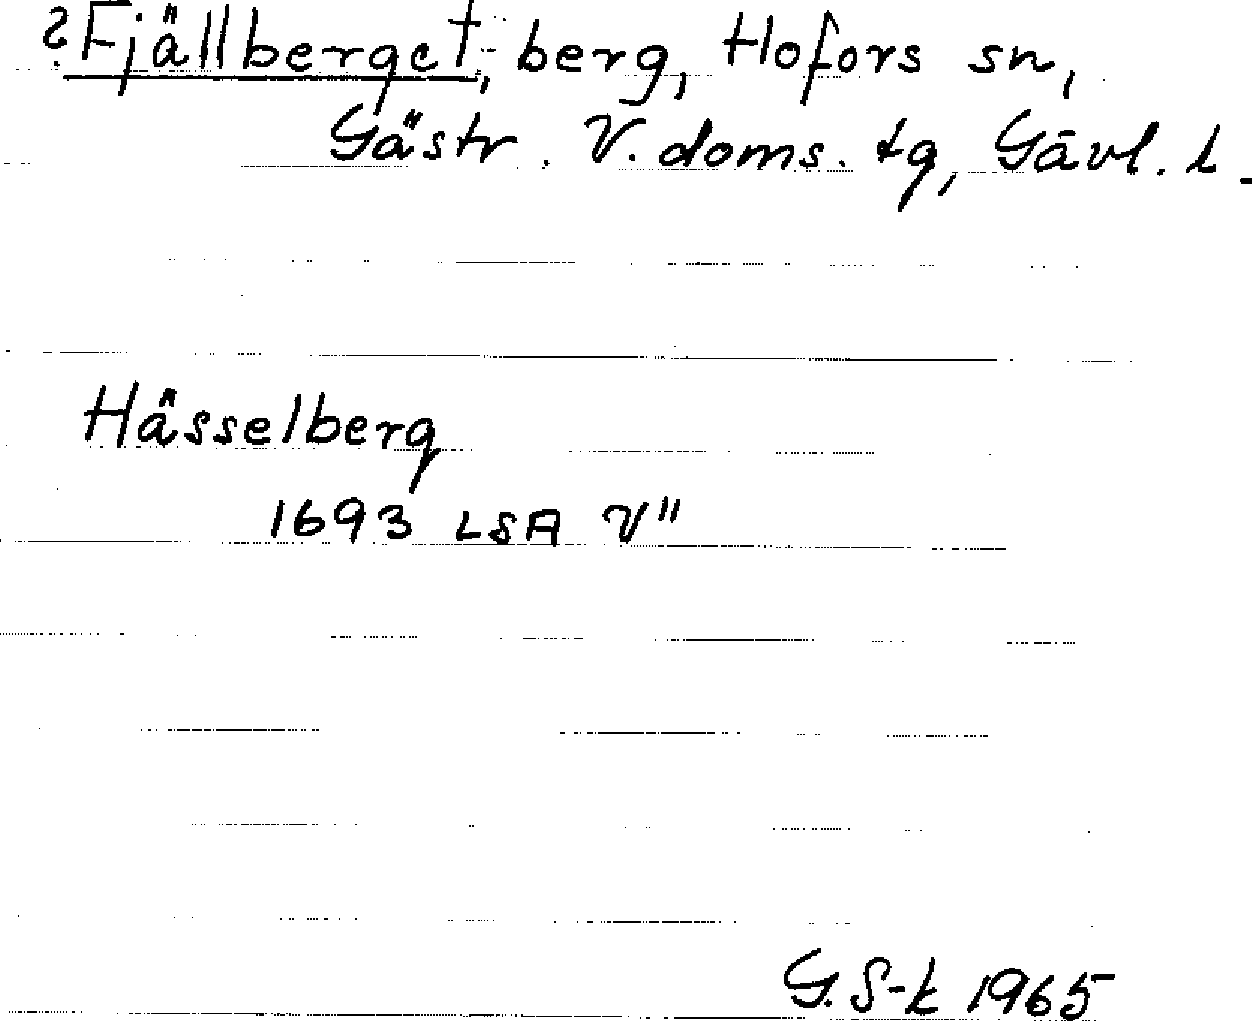 ?Fjällberget, berg, Hofors sn,
Gästr. V. doms. tg, Gävl. l.
Hässelberg
1693 LSA V"
G. S-k 1965